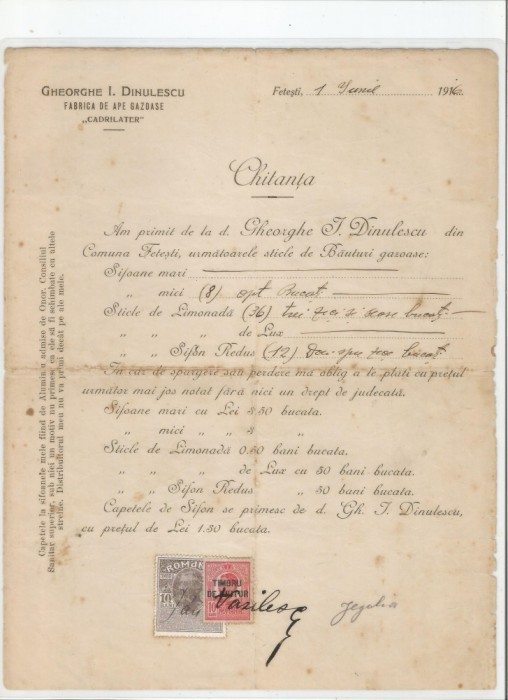 GHEORGHE I. DINULESCU
FABRICA DE APE GAZOASE
„CADRILATER”
Fetești, 1 Iunie 191
Chitanța
Am primit de la d. Gheorghe I. Dinulescu din
Comuna Fetești, următoarele sticle de Băuturi gazoase:
Sifoane mari
„ mici (8) opt bucăț
Sticle de Limonadă (36) trei zeci și bucăț
„ „ de Lux
„ „ Sifon Redus (12) bucăț
In caz de spargere sau perdere mă oblig a le plăti cu prețul
următor mai jos notat fără nici un drept de judecată.
Sifoane mari cu Lei 3.50 bucata.
„ mici „ „ 3 „
Sticle de Limonadă 0.50 bani bucata.
„ „ de Lux cu 50 bani bucata.
„ „ Sifon Redus „ 50 bani bucata.
Capetele de Sifon se primesc de d. Gh. I. Dinulescu,
cu prețul de Lei 1.50 bucata.
Capetele la sifoanele mele fiind de Aluminiu admise de Onor. Consiliul
Sanitar superior, sub nici un motiv nu primesc ca ele să fi schimbate cu altele
streine. Distribuitorul meu nu va primi decât pe ale mele.
ROMANIA
10
TIMBRU
DE AJUTOR
10
Vasilescu